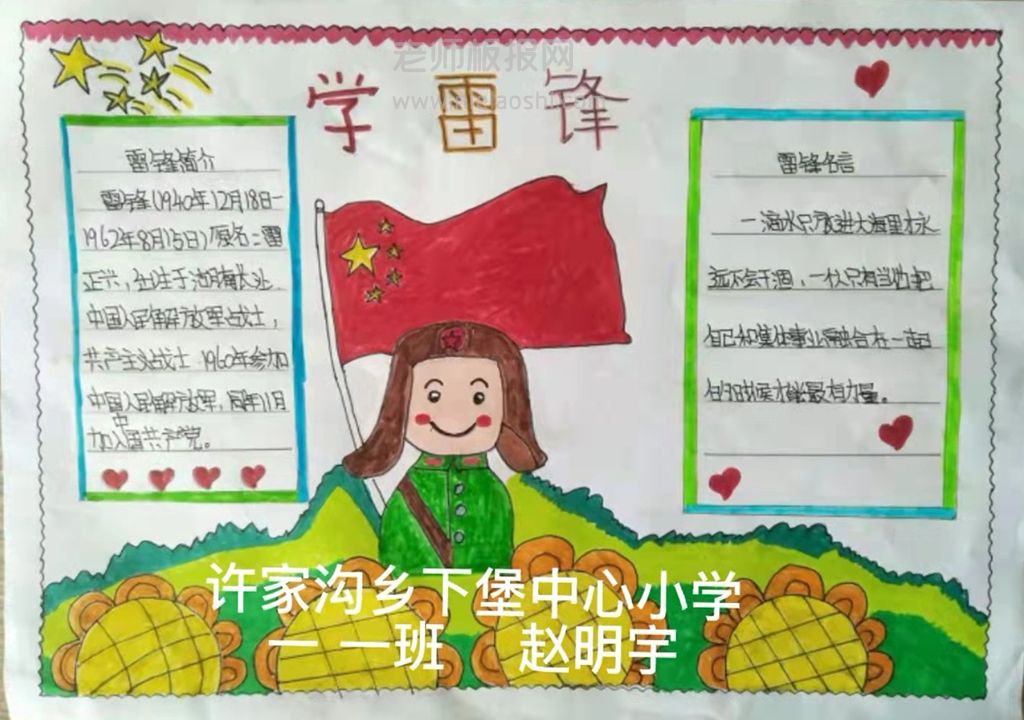 老师板报网
学雷锋
雷锋简介
雷锋(1940年12月18日-
1962年8月15日)原名:雷
正兴,出生于湖南长沙
中国人民解放军战士,
共产主义战士 1960年参加
中国人民解放军,同年11月
加入中国共产党。
雷锋名言
一滴水只有放进大海里才永
远不会干涸,一个人只有当他把
自己和集体事业融合在一起
的时候才能最有力量。
许家沟乡下堡中心小学
一 一班 赵明宇